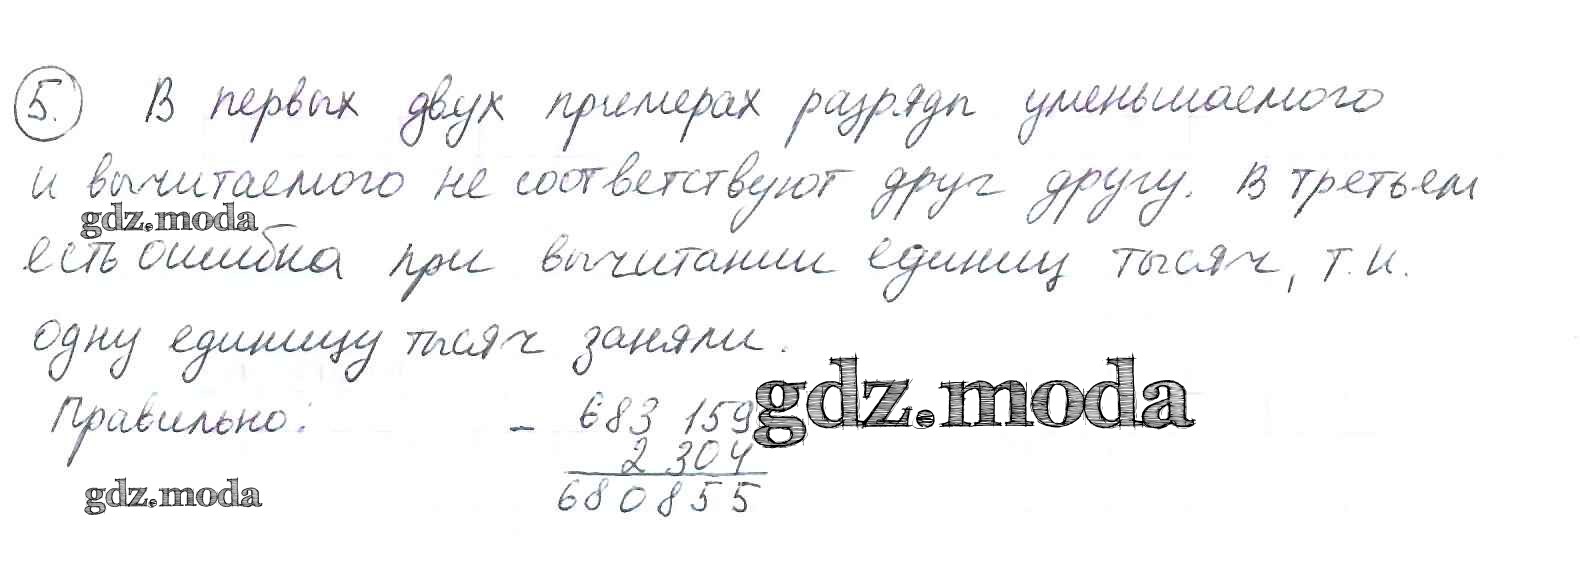 5. В первых двух примерах разряды уменьшаемого
и вычитаемого не соответствуют друг другу. В третьем
gdz.moda
есть ошибка при вычитании единиц тысяч, т.к.
одну единицу тысяч заняли.
Правильно: - 683 159
gdz.moda
2 304
680855
gdz.moda